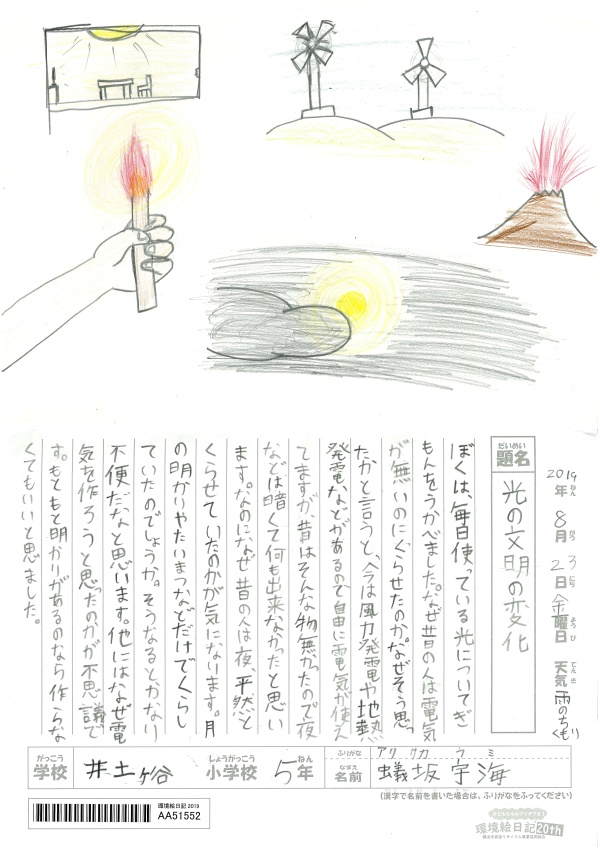 2019年 8月 23日 金曜日 天気 雨のちくもり
ねん がつ にち ようび てんき
だいめい
題名 光の文明の変化
ぼくは、毎日使っている光についてぎ
もんをうかべました。なぜ昔の人は電気
が無いのにくらせたのか。なぜそう思っ
たかと言うと、今は風力発電や地熱
発電などがあるので自由に電気が使え
てますが、昔はそんな物無かったので夜
などは暗くて何も出来なかったと思い
ます。なのになぜ昔の人は夜、平然と
くらせていたのかが気になります。月
の明かりやたいまつなどだけでくらし
ていたのでしょうか。そうなると、かなり
不便だなと思います。他にはなぜ電
気を作ろうと思ったのかが不思議で
す。もともと明かりがあるのなら作らな
くてもいいと思ました。
がっこう しょうがっこう ねん ふりがな アリ サカ ウ ミ
学校 井土ヶ谷 小学校 5年 なまえ 名前 蟻坂宇海
(漢字で名前を書いた場合は、ふりがなをふってください)
環境絵日記 2019
AA51552
環境絵日記20th